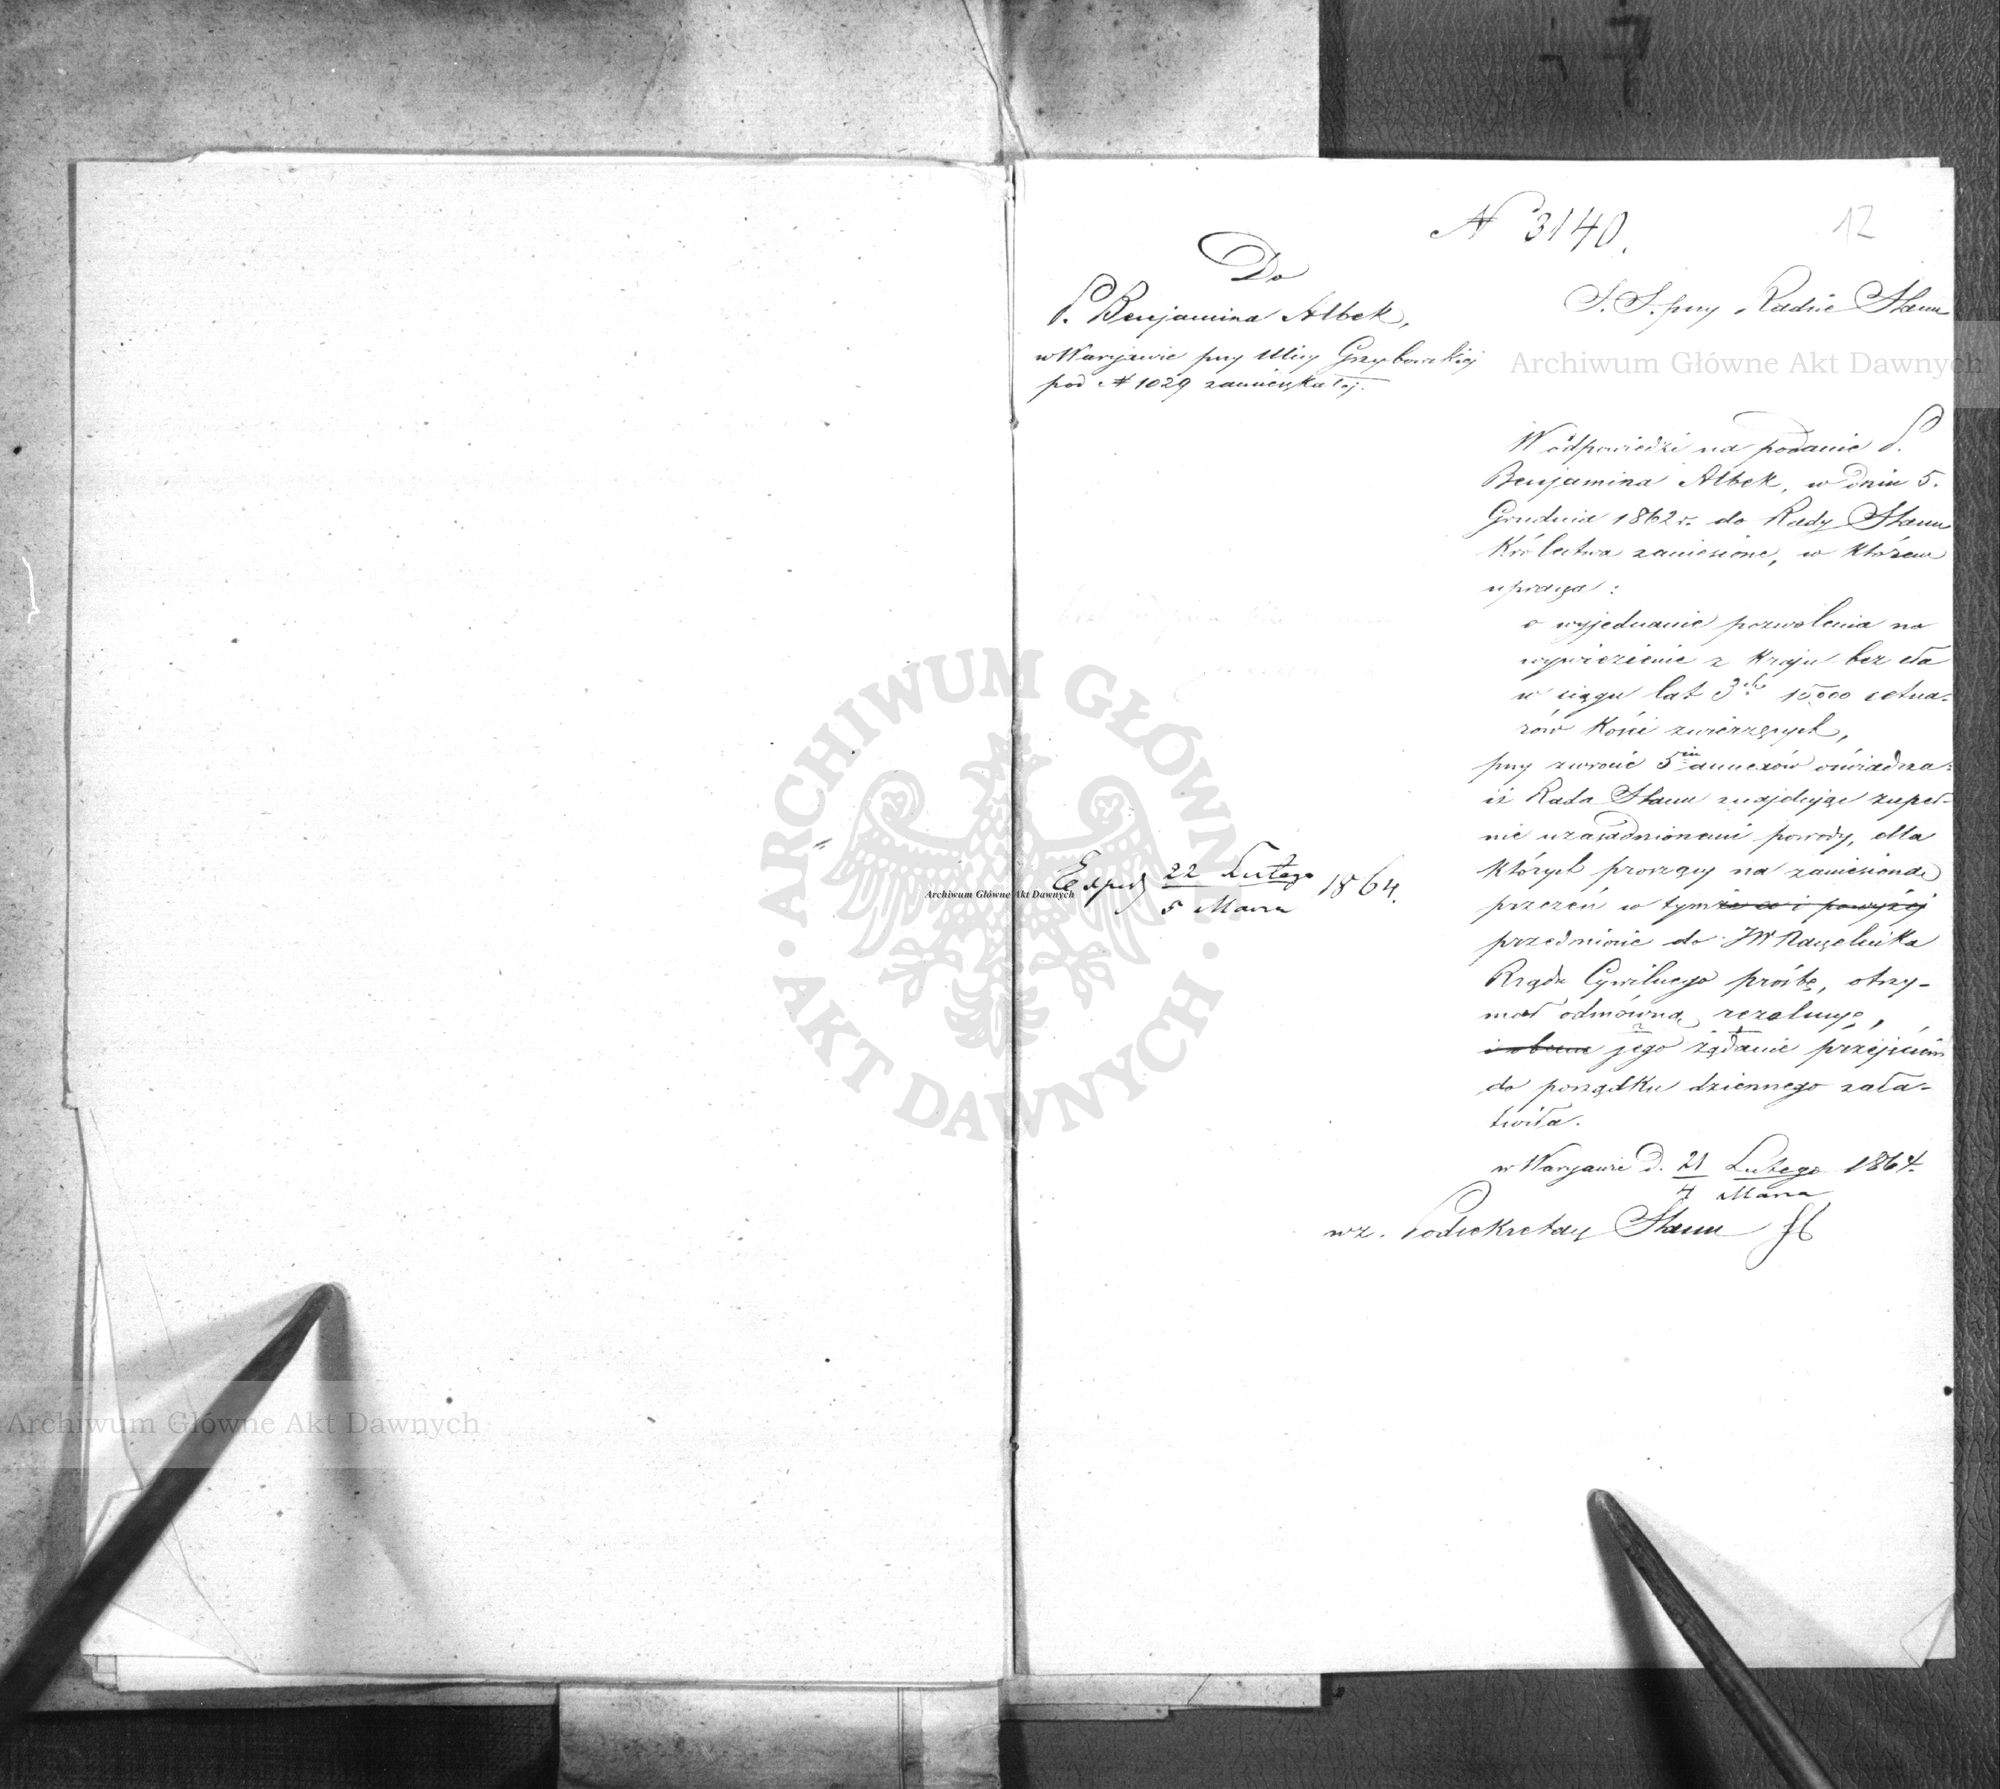 N 3140.
12
Do
P. Benjamina Albek,
w Warszawie przy Ulicy Grzybowskiej
pod N 1029 zamieszkałej.
S. S. przy Radzie Stanu
W odpowiedzi na podanie P.
Benjamina Albek, w dniu 5.
Grudnia 1862 r. do Rady Stanu
Królestwa zaniesione, w którem
uprasza:
o wyjednanie pozwolenia na
wywiezienie z Kraju bez cła
w ciągu lat 3ch 15000 cetna-
rów Kości zwierzęcych,
przy zwrocie 5iu annexów oświadcza
iż Rada Stanu znajdując zupeł-
nie uzasadnionemi powody, dla
których proszący na zaniesioną
przezeń w tymże co i powyżej
przedmiocie do JW Naczelnika
Rządu Cywilnego prośbę, otrzy-
mał odmówną rezolucyę,
i obecne jego żądanie przejściem
do porządku dziennego zała-
twiła.
w Warszawie d. 21 Lutego 1864.
4 Marca
wz. Podsekretarz Stanu
Exped 22 Lutego 1864.
5 Marca
Archiwum Główne Akt Dawnych
Archiwum Główne Akt Dawnych
Archiwum Główne Akt Dawnych
ARCHIWUM GŁÓWNE
AKT DAWNYCH